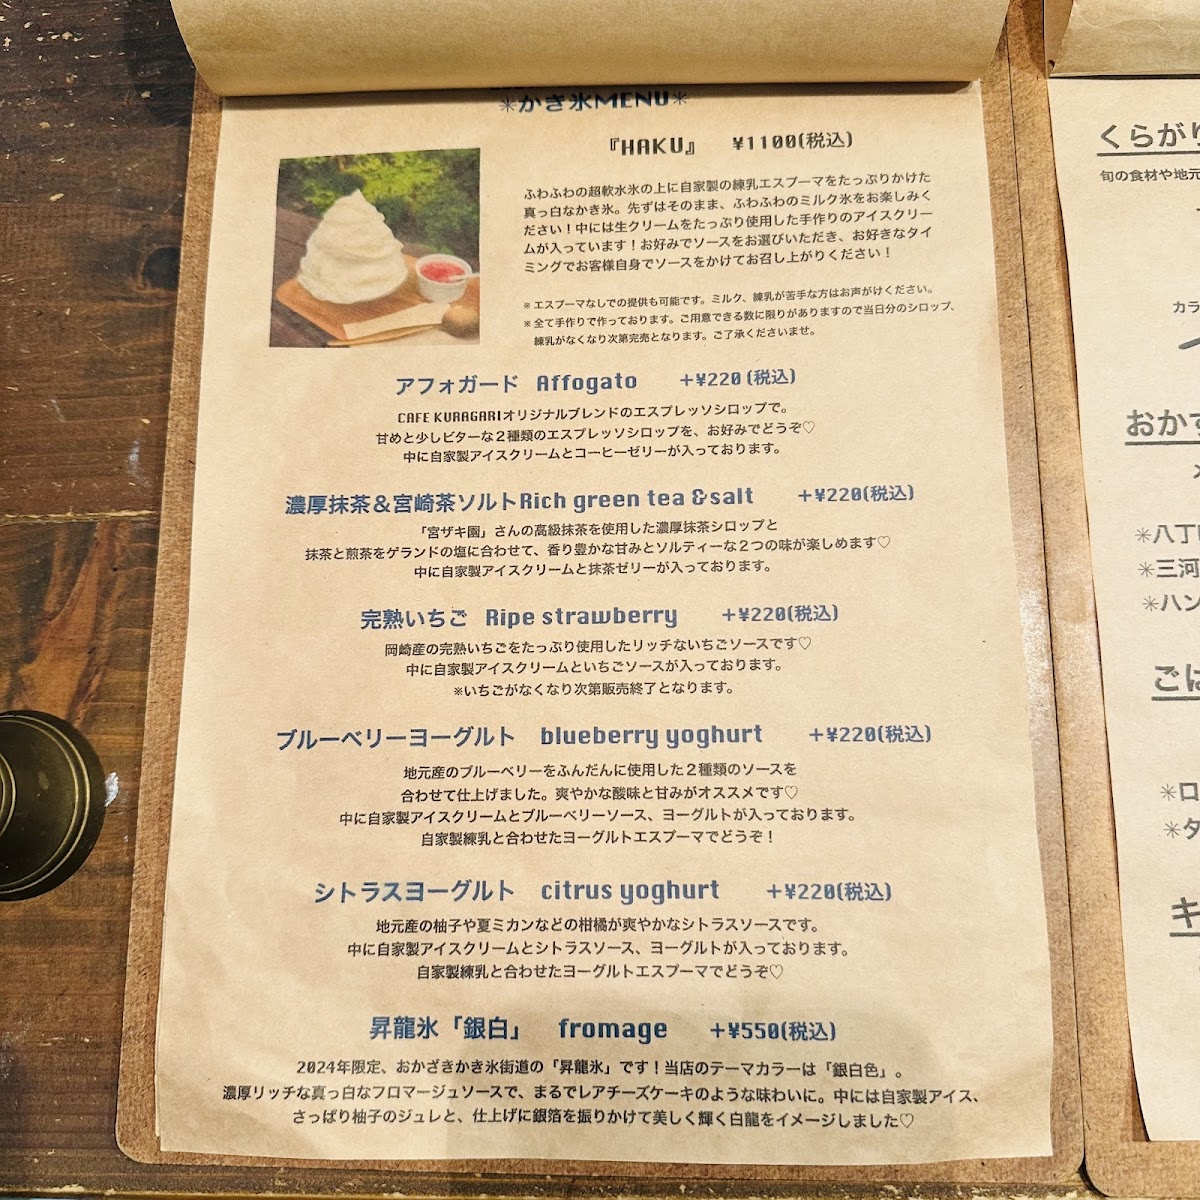 ✳かき氷MENU✳
『HAKU』 ¥1100(税込)
ふわふわの超軟水氷の上に自家製の練乳エスプーマをたっぷりかけた
真っ白なかき氷。先ずはそのまま、ふわふわのミルク氷をお楽しみく
ださい！中には生クリームをたっぷり使用した手作りのアイスクリー
ムが入っています！お好みでソースをお選びいただき、お好きなタイ
ミングでお客様自身でソースをかけてお召し上がりください！
※エスプーマなしでの提供も可能です。ミルク、練乳が苦手な方はお声がけください。
※全て手作りで作っております。ご用意できる数に限りがありますので当日分のシロップ、
練乳がなくなり次第完売となります。ご了承くださいませ。
アフォガード Affogato +¥220(税込)
CAFE KURAGARIオリジナルブレンドのエスプレッソシロップで。
甘めと少しビターな２種類のエスプレッソシロップを、お好みでどうぞ♡
中に自家製アイスクリームとコーヒーゼリーが入っております。
濃厚抹茶＆宮崎茶ソルトRich green tea &salt +¥220(税込)
「宮ザキ園」さんの高級抹茶を使用した濃厚抹茶シロップと
抹茶と煎茶をゲランドの塩に合わせて、香り豊かな甘みとソルティーな２つの味が楽しめます♡
中に自家製アイスクリームと抹茶ゼリーが入っております。
完熟いちご Ripe strawberry +¥220(税込)
岡崎産の完熟いちごをたっぷり使用したリッチないちごソースです♡
中に自家製アイスクリームといちごソースが入っております。
※いちごがなくなり次第販売終了となります。
ブルーベリーヨーグルト blueberry yoghurt +¥220(税込)
地元産のブルーベリーをふんだんに使用した２種類のソースを
合わせて仕上げました。爽やかな酸味と甘みがオススメです♡
中に自家製アイスクリームとブルーベリーソース、ヨーグルトが入っております。
自家製練乳と合わせたヨーグルトエスプーマでどうぞ！
シトラスヨーグルト citrus yoghurt +¥220(税込)
地元産の柚子や夏ミカンなどの柑橘が爽やかなシトラスソースです。
中に自家製アイスクリームとシトラスソース、ヨーグルトが入っております。
自家製練乳と合わせたヨーグルトエスプーマでどうぞ♡
昇龍氷「銀白」 fromage +¥550(税込)
2024年限定、おかざきかき氷街道の「昇龍氷」です！当店のテーマカラーは「銀白色」。
濃厚リッチな真っ白なフロマージュソースで、まるでレアチーズケーキのような味わいに。中には自家製アイス、
さっぱり柚子のジュレと、仕上げに銀箔を振りかけて美しく輝く白龍をイメージしました♡
くらがり
旬の食材や地元
カラ
おかず
✳八丁
✳三河
✳ハン
ごは
✳ロ
✳タ
キ